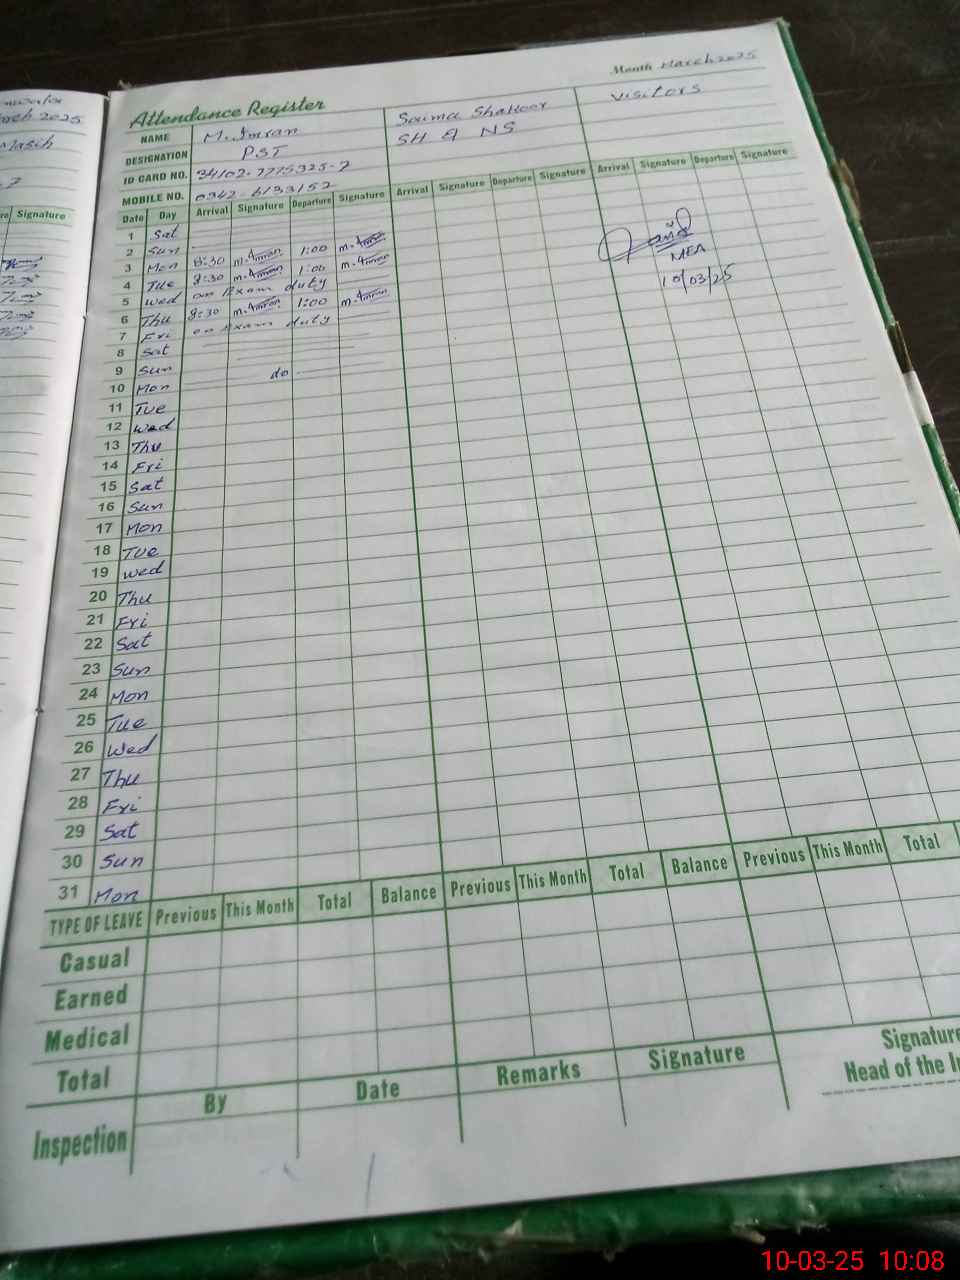 March 2025
Masih
Signature
Attendance Register
Month March 2025
NAME M. Imran Saima Shakoor Visitors
DESIGNATION PST SH & NS
ID CARD NO. 34102-7775325-7
MOBILE NO. 0342-6133152
Date Day Arrival Signature Departure Signature Arrival Signature Departure Signature Arrival Signature Departure Signature
1 Sat
2 Sun
3 Mon 8:30 M. Imran 1:00 M. Imran
4 Tue 8:30 M. Imran 1:00 M. Imran
5 Wed on Exam duty
6 Thu 8:30 M. Imran 1:00 M. Imran
7 Fri on Exam duty
8 Sat
9 Sun
10 Mon do
MEA
10/03/25
11 Tue
12 Wed
13 Thu
14 Fri
15 Sat
16 Sun
17 Mon
18 Tue
19 Wed
20 Thu
21 Fri
22 Sat
23 Sun
24 Mon
25 Tue
26 Wed
27 Thu
28 Fri
29 Sat
30 Sun
31 Mon
TYPE OF LEAVE Previous This Month Total Balance Previous This Month Total Balance Previous This Month Total
Casual
Earned
Medical
Total
By Date Remarks Signature
Inspection
Signature
Head of the In
10-03-25 10:08